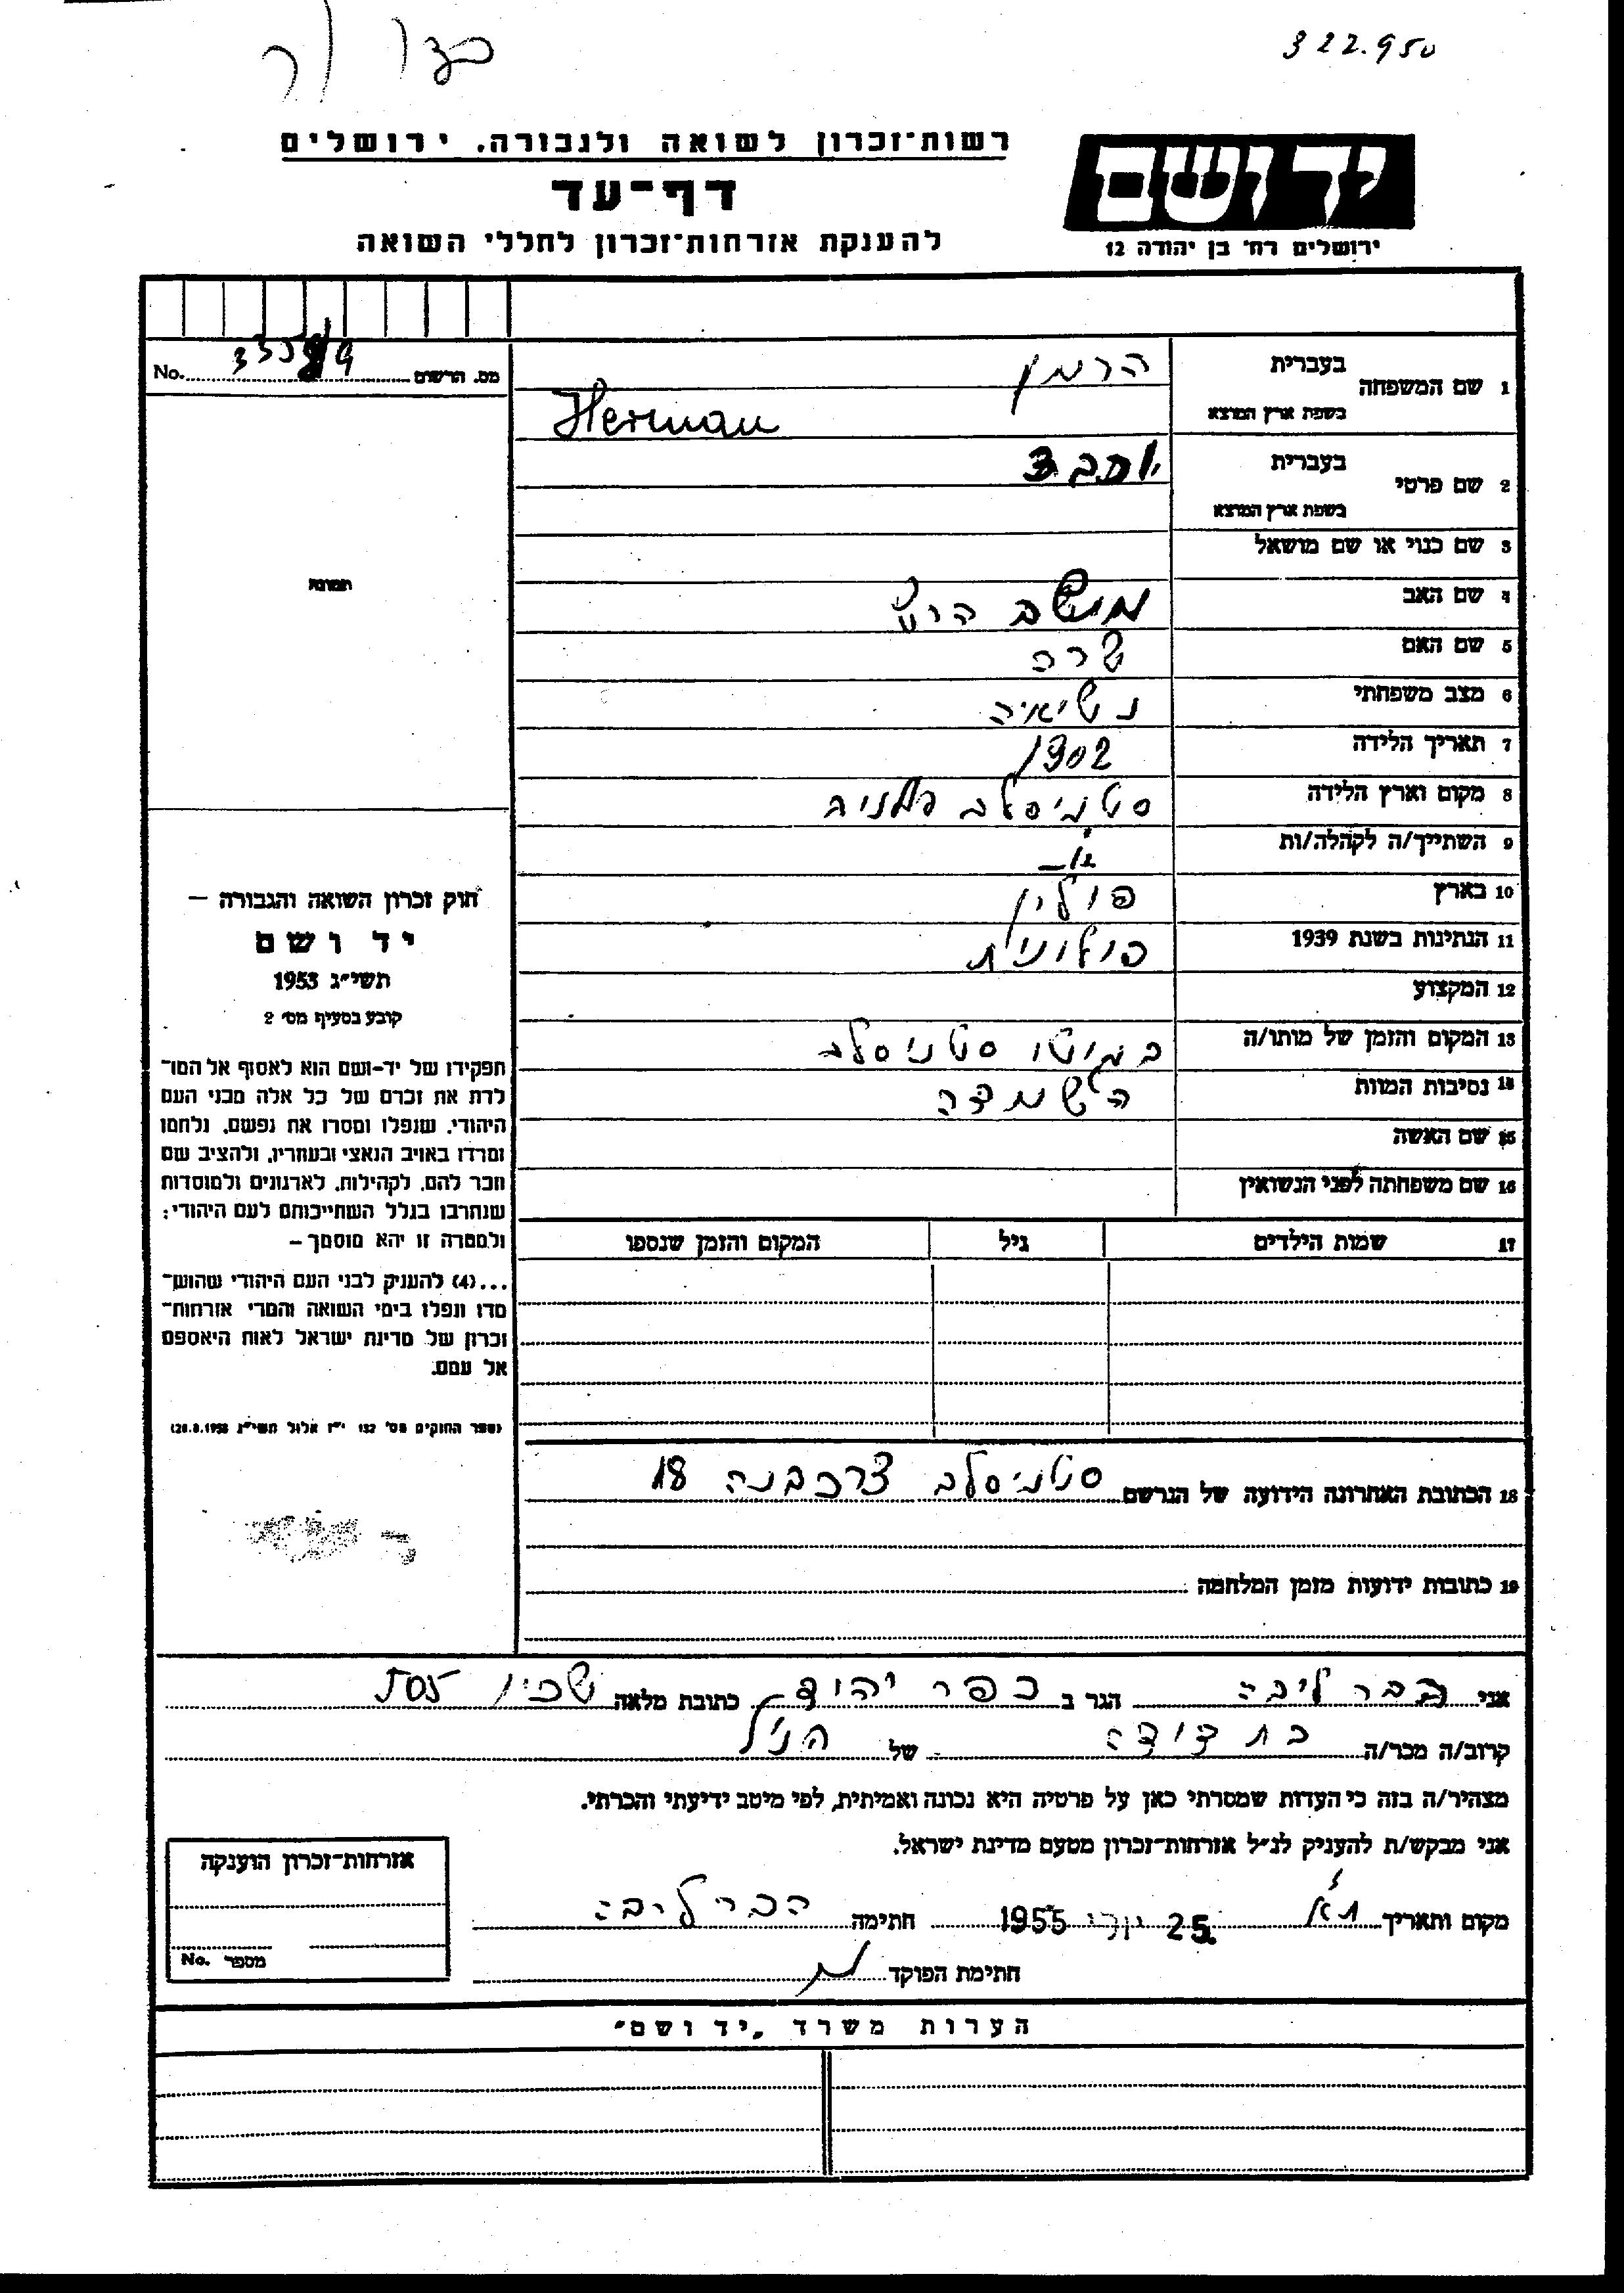 322.950
רשות־זכרון לשואה ולגבורה, ירושלים
יד ושם
דף־עד
להענקת אזרחות־זכרון לחללי השואה
ירושלים רח' בן יהודה 12
No. מס. הרשום
1 שם המשפחה בעברית הרמן
בשפת ארץ המוצא Herman
2 שם פרטי בעברית
בשפת ארץ המוצא
3 שם כנוי או שם מושאל
4 שם האב
5 שם האם שרה
6 מצב משפחתי נשואיה
7 תאריך הלידה 1902
8 מקום וארץ הלידה סטניסלב
9 השתייך/ה לקהלה/ות
10 בארץ פולין
11 הנתינות בשנת 1939 פולונית
12 המקצוע
13 המקום והזמן של מותו/ה בגיטו סטניסלב
14 נסיבות המוות השמדה
15 שם האשה
16 שם משפחתה לפני הנשואין
17 שמות הילדים גיל המקום והזמן שנספו
תמונה
חוק זכרון השואה והגבורה –
יד ושם
תשי"ג 1953
קובע בסעיף מס' 2
תפקידו של יד-ושם הוא לאסוף אל המו־
לדת את זכרם של כל אלה מבני העם
היהודי, שנפלו ומסרו את נפשם, נלחמו
ומרדו באויב הנאצי ובעוזריו, ולהציב שם
וזכר להם, לקהילות, לארגונים ולמוסדות
שנחרבו בגלל השתייכותם לעם היהודי;
ולמטרה זו יהא מוסמך –
...(4) להעניק לבני העם היהודי שהוש־
מדו ונפלו בימי השואה והמרי אזרחות־
זכרון של מדינת ישראל לאות היאספם
אל עמם.
(ספר החוקים מס' 132 י"ז אלול תשי"ג 28.8.1953)
18 הכתובת האחרונה הידועה של הנרשם סטניסלב 18
19 כתובות ידועות מזמן המלחמה
אני הבר ליבה הגר ב כפר יהוד כתובת מלאה שכון 505
קרוב/ה מכר/ה בת דודה של הנ"ל
מצהיר/ה בזה כי העדות שמסרתי כאן על פרטיה היא נכונה ואמיתית, לפי מיטב ידיעתי והכרתי.
אני מבקש/ת להעניק לנ"ל אזרחות־זכרון מטעם מדינת ישראל.
מקום ותאריך ת"א 25. 1955 חתימה הבר ליבה
חתימת הפוקד
אזרחות־זכרון הוענקה
מספר No.
הערות משרד „יד ושם"